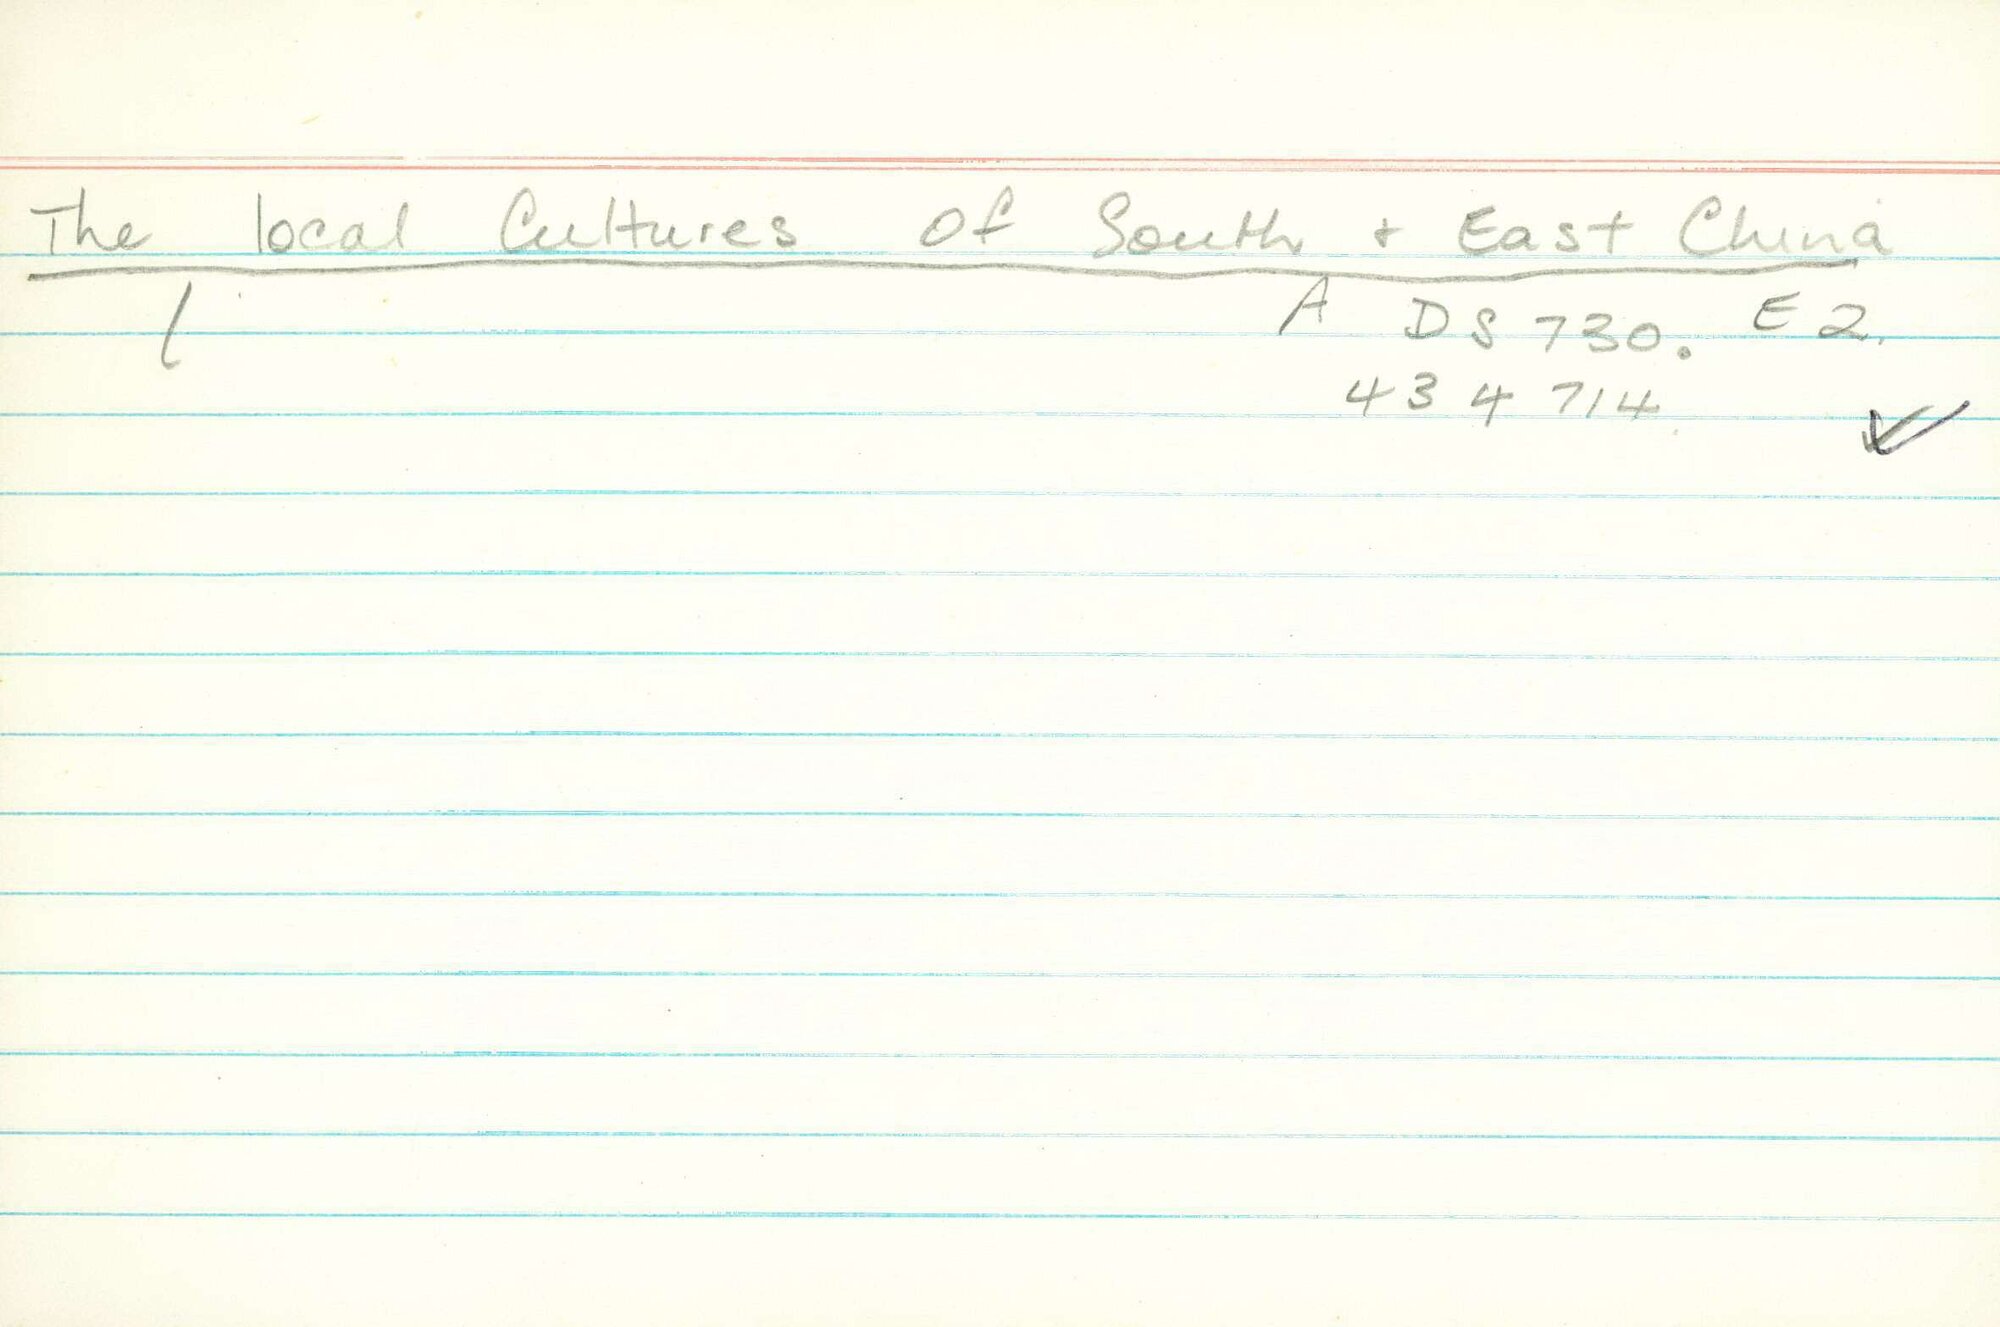 The local Cultures of South + East China
A DS 730. E2.
434714